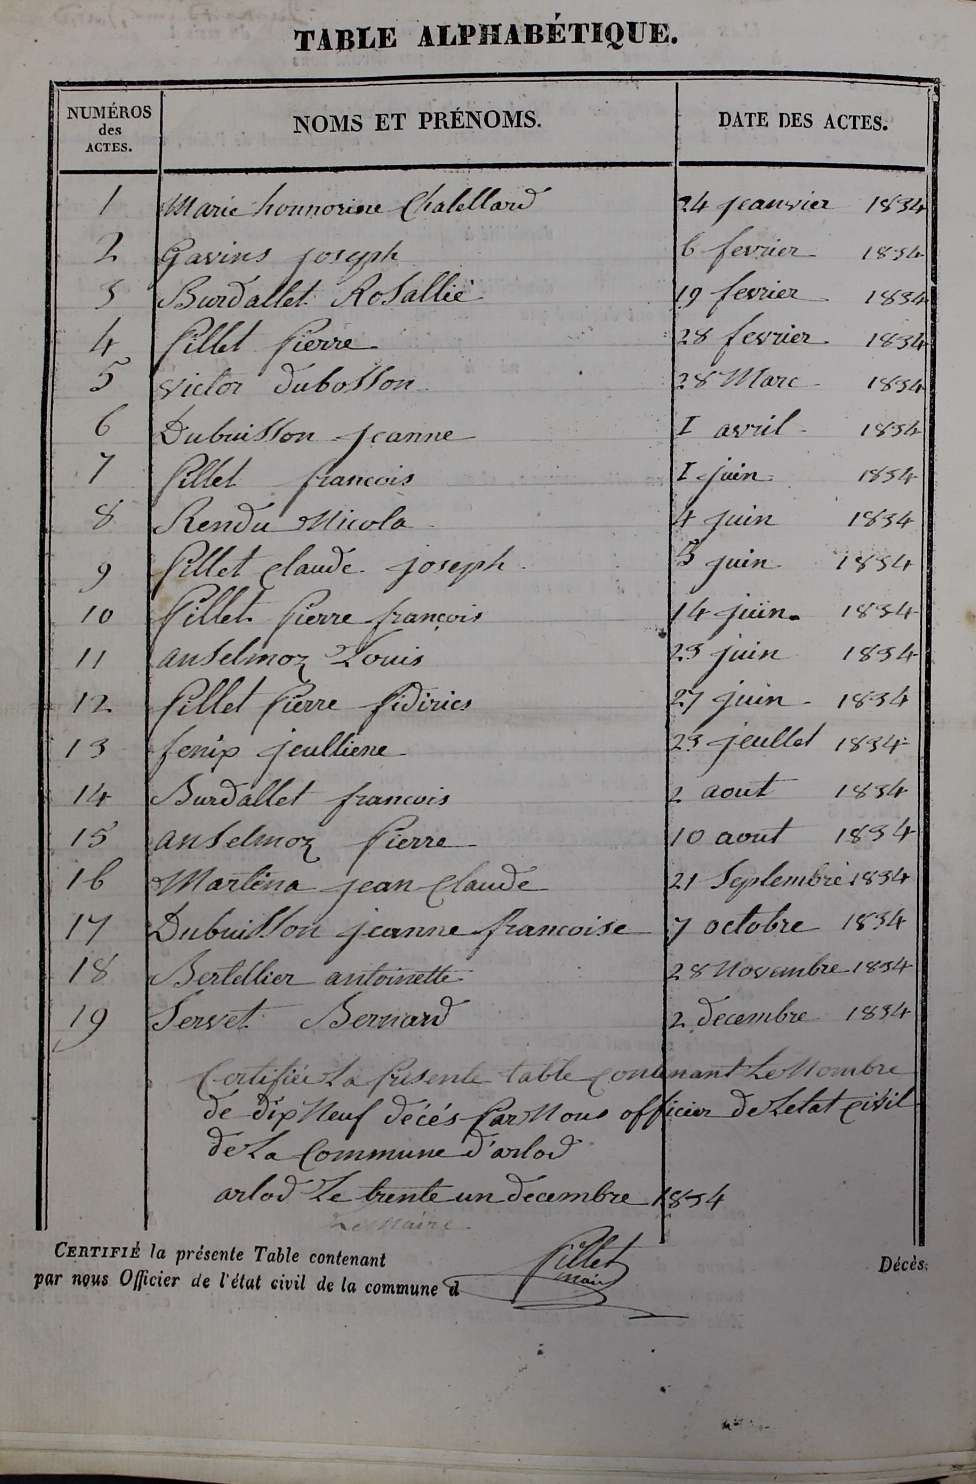 TABLE ALPHABÉTIQUE.
NUMÉROS des ACTES. NOMS ET PRÉNOMS. DATE DES ACTES.
1 Marie honnorine Chatellard 24 jeanvier 1834
2 Gavins joseph 6 fevrier 1834
3 Burdallet Rosallie 19 fevrier 1834
4 Pillet Pierre 28 fevrier 1834
5 victor dubosson 28 Marc 1834
6 Dubuisson jeanne 1 avril 1834
7 Pillet francois 1 juin 1834
8 Rendu Nicola 4 juin 1834
9 Pillet Claude joseph 5 juin 1834
10 Pillet Pierre françois 14 juin 1834
11 anselmoz Louis 23 juin 1834
12 Pillet Pierre fidirics 27 juin 1834
13 fenix jeulliene 23 jeullet 1834
14 Burdallet francois 2 aout 1834
15 anselmoz Pierre 10 aout 1834
16 Martina jean Claude 21 Septembre 1834
17 Dubuisson jeanne francoise 7 octobre 1834
18 Bertellier antoinette 28 Novembre 1834
19 Servet Bernard 2 decembre 1834
Certifiée La Présente table Contenant Le Nombre
de dix Neuf décés Par Nous officier de Letat Civil
de La Commune d'arlod
arlod Le trente un decembre 1834
Le Maire
CERTIFIÉ la présente Table contenant Décès.
par nous Officier de l'état civil de la commune d
Pillet
Maire